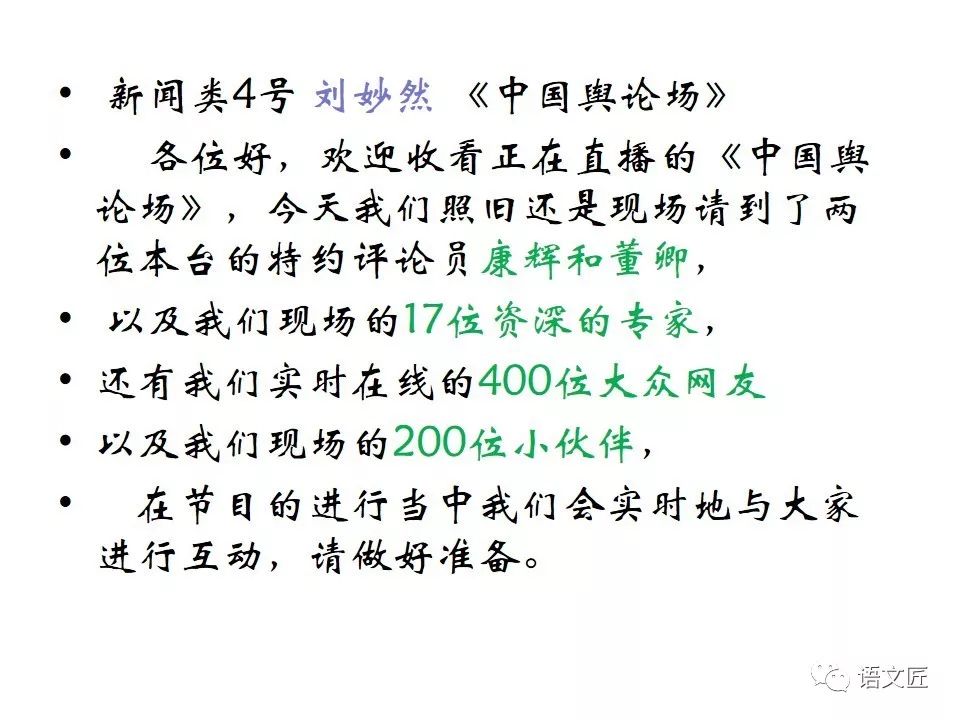 • 新闻类4号 刘妙然 《中国舆论场》
• 各位好，欢迎收看正在直播的《中国舆
论场》，今天我们照旧还是现场请到了两
位本台的特约评论员康辉和董卿，
• 以及我们现场的17位资深的专家，
• 还有我们实时在线的400位大众网友
• 以及我们现场的200位小伙伴，
• 在节目的进行当中我们会实时地与大家
进行互动，请做好准备。
语文匠